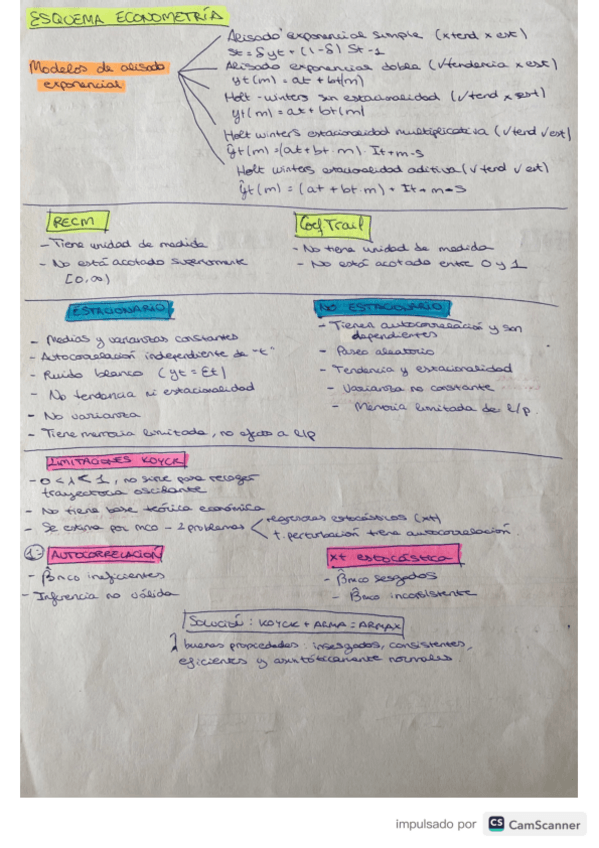 ESQUEMA ECONOMETRÍA
Modelos de alisado
exponencial
Alisado exponencial simple (x tend x est)
St = δyt + (1-δ) St-1
Alisado exponencial doble (√tendencia x est)
yt(m) = at + bt(m)
Holt-winters sin estacionalidad (√tend x est)
yt(m) = at + bt(m)
Holt winters estacionalidad multiplicativa (√tend √est)
ŷt(m) = (at + bt·m)·It+m-s
Holt winters estacionalidad aditiva (√tend √est)
ŷt(m) = (at + bt·m) + It+m-s
RECM
- Tiene unidad de medida
- No está acotado superiormente
[0,∞)
Coef Trail
- No tiene unidad de medida
- No está acotado entre 0 y 1
ESTACIONARIO
- Medias y varianzas constantes
- Autocorrelación independiente de "t"
- Ruido blanco (yt = Et)
- No tendencia ni estacionalidad
- No varianza
- Tiene memoria limitada, no efecto a l/p
NO ESTACIONARIO
- Tienen autocorrelación y son
dependientes
- Paseo aleatorio
- Tendencia y estacionalidad
- Varianza no constante
- Memoria limitada de l/p.
LIMITACIONES KOYCK
- 0 < λ < 1, no sirve para recoger
trayectoria oscilante
- No tiene base teórica económica
- Se estima por mco - 2 problemas
regresores estocásticos (xt)
t. perturbación tiene autocorrelación.
1- AUTOCORRELACIÓN
- β̂mco ineficientes
- Inferencia no válida
xt estocástica
- β̂mco sesgados
- β̂mco inconsistente
SOLUCIÓN: KOYCK + ARMA = ARMAX
buenas propiedades: insesgados, consistentes,
eficientes y asintóticamente normales
impulsado por CS CamScanner